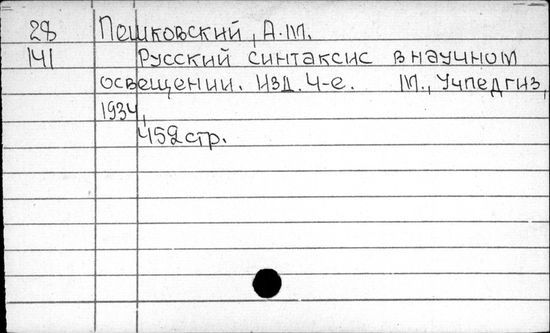 28 Пешковский, А.М.
141 Русский синтаксис в научном
освещении. Изд. 4-е. М., Учпедгиз,
1934,
452 стр.